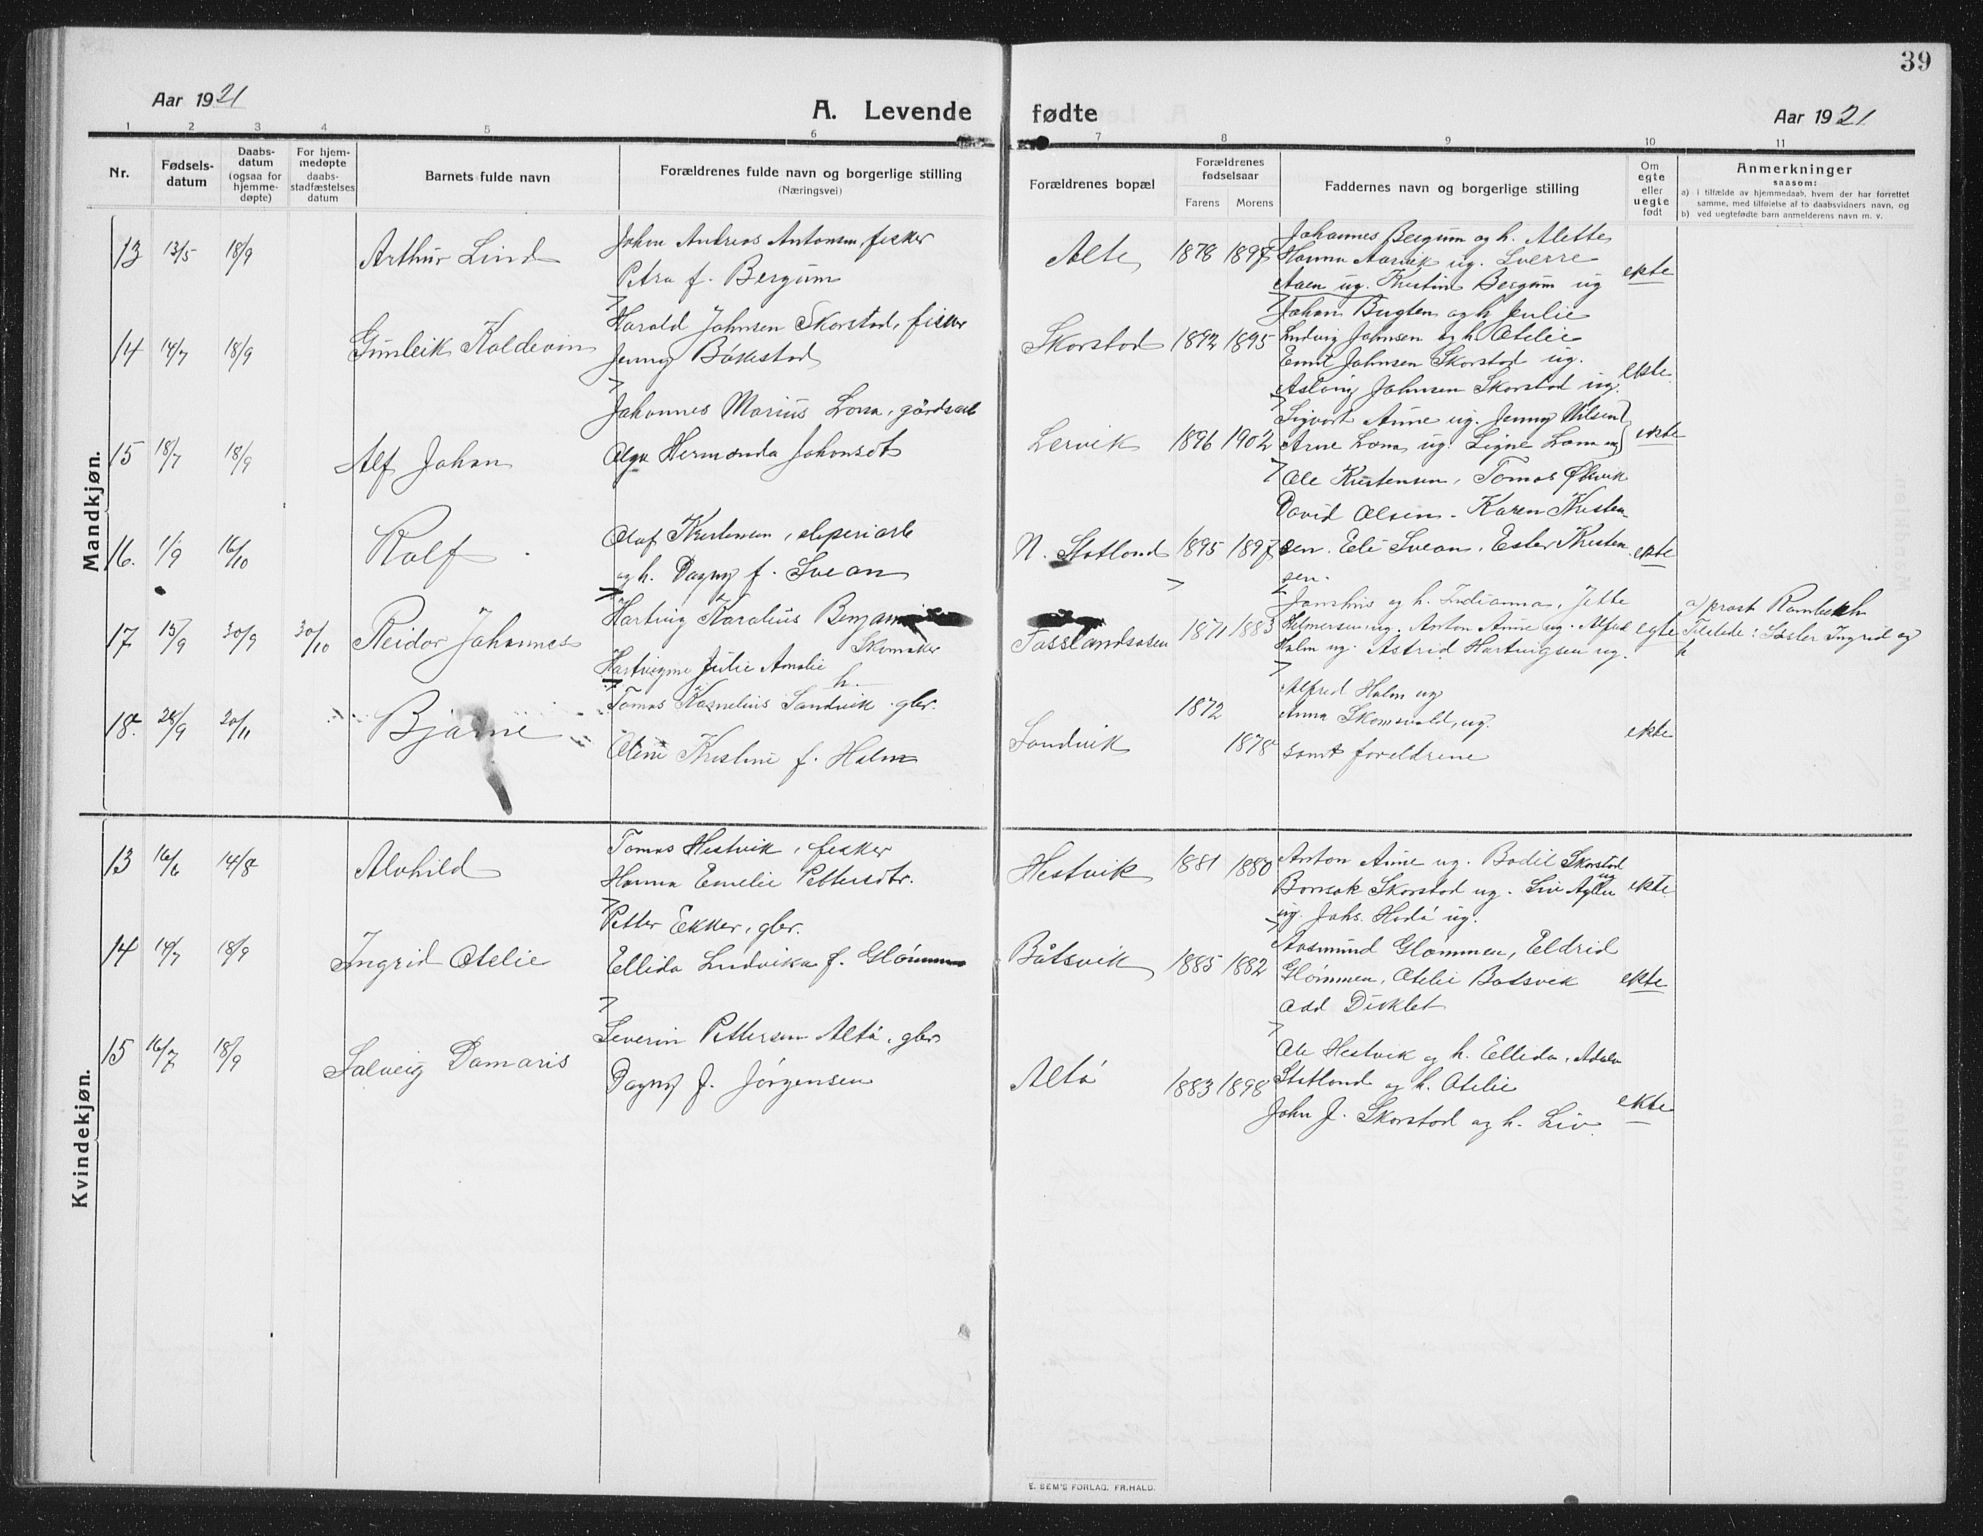 39
Aar 1921
A. Levende fødte
Aar 1921
1 2 3 4 5 6 7 8 9 10 11
Nr.
Fødsels-
datum
Daabs-
datum
(ogsaa for
hjemme-
døpte)
For hjem-
medøpte
daabs-
stadfæstelses
datum
Barnets fulde navn
Forældrenes fulde navn og borgerlige stilling
(Næringsvei)
Forældrenes bopæl
Forældrenes
fødselsaar
Farens Morens
Faddernes navn og borgerlige stilling
Om
egte
eller
uegte
født
Anmerkninger
saasom:
a) i tilfælde av hjemmedaab, hvem der har forrettet
samme, med tilføielse af to daabsvidners navn, og
b) ved uegtefødte barn anmelderens navn m. v.
Mandkjøn.
13 13/5 18/9 Arthur Lind
Johan Andreas Antonsen, fisker
Petra f. Bergum
Alte 1878 1897
Johannes Bergum og h. Alette
Hanna Aarvik ug. Sverre
Aaen ug. Kristin Bergum ug
Johan Bugten og h Julie
ekte
14 14/7 18/9 Gunleik Koldevin
Harald Johnsen Skorstad, fisker
Jenny Båkestad
Skorstad 1892 1895
Ludvig Johnsen og h. Otelie
Emil Johnsen Skorstad ug.
Aslaug Johnsen Skorstad ug.
ekte.
15 18/7 18/9 Alf Johan
Johannes Marius Lona, gårdsarb
Olga Hermanda Johansdt
Lervik 1896 1902
Sigvart Aune ug. Jenny Nilsen
Arne Lona ug. Signe Lona ug
ekte
16. 1/9 16/10 Rolf.
Olaf Kristensen, sliperiarb
og h. Dagny f. Svean
N. Statland 1895 1897
Ole Kristensen, Tomas Økvik
David Olsen. Karen Kristen-
sen. Eli Svean, Ester Kristen-
sen.
ekte
17 15/9 30/9 30/10 Reidar Johannes
Hartvig Karolius Benjami
Skomaker
Julie Amalie
h.
Tosslandsosen 1871 1883
og h. Indianna, Jette
Helmersen, ug. Anton Aune ug. Alfred
Holm ug. Astrid Hartvigsen ug.
egte
a/ prost
Tilstede: Søster Ingrid og
18. 28/9 20/11 Bjarne
Tomas Kornelius Sandvik. gbr.
Oline Kristine f. Holm
Sandvik 1872 1878
Alfred Holm ug
Anna Skomsvold, ug.
samt foreldrene
ekte
Kvindekjøn.
13 16/6 14/8 Alvhild
Tomas Hestvik, fisker
Hanna Emelie Pettersdtr.
Hestvik 1881 1880
Anton Aune ug. Bodil Skorstad
ug
Skorstad ug. Liv
ug. Johs. ug.
ekte
14 14/7 18/9 Ingrid Otelie
Petter Ekker, gbr.
Ellida Ludvika f. Glømmen
Båtsvik 1885 1882
Aasmund Glømmen, Eldrid
Glømmen, Otelie Båtsvik
Odd
ekte
15 16/7 18/9 Solveig Damaris
Severin Pettersen Altø, gbr
Dagny f. Jørgensen
Altø 1883 1898
Ole Hestvik og h. Ellida,
Statland og h. Otelie
John J. Skorstad og h. Liv
ekte
E. SEM'S FORLAG, FR.HALD.